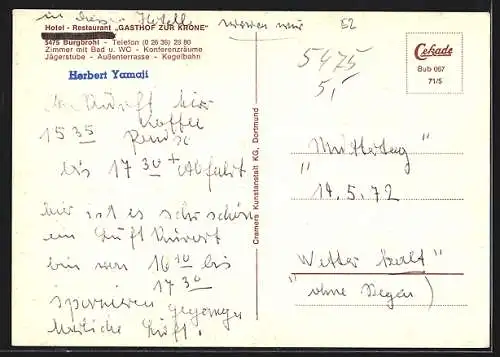 in dieser Hotell waren wir 52
Hotel - Restaurant „GASTHOF ZUR KRONE"
5475 Burgbrohl - Telefon (0 26 36) 28 80
Zimmer mit Bad u. WC - Konferenzräume
Jägerstube - Außenterrasse - Kegelbahn
Herbert Yamaji
Ankunft hier
15 35 Kaffee
Pause
bis 17 30 + Abfahrt
hier ist es sehr schön
ein Luft Kurort
bin von 16 10 bis
17 30
spazieren gegangen
Luft.
Dramers Kunstanstalt KG, Dortmund
Cekade
Bub 067
71/5
5475
5,-
"Muttertag"
14.5.72
Wetter kalt
"ohne Regen)